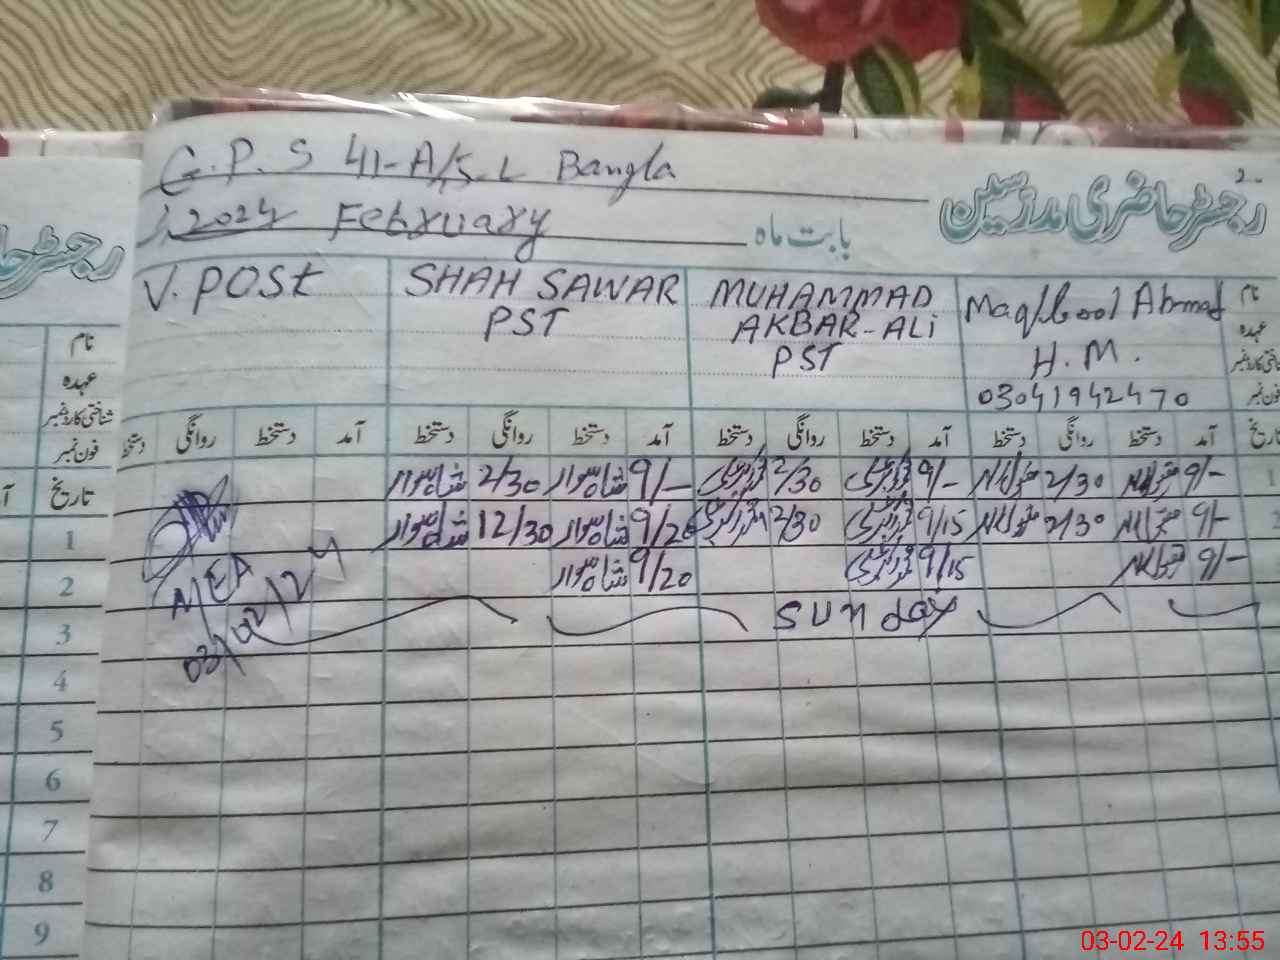 G.P.S 41-A/5.L Bangla
رجسٹر حاضری مدرسین
2024 February
بابت ماہ
V. POST
SHAH SAWAR
PST
MUHAMMAD
AKBAR-ALi
PST
Maqbool Ahmad
H.M.
03041942470
نام
عہدہ
شناختی کارڈ نمبر
فون نمبر
دستخط روانگی دستخط آمد دستخط روانگی دستخط آمد دستخط روانگی دستخط آمد دستخط روانگی دستخط آمد تاریخ
شاہ سوار 2/30 شاہ سوار 9/- 2/30 9/- 2/30 9/- 1
شاہ سوار 12/30 شاہ سوار 9/20 2/30 9/15 2/30 9/- 2
شاہ سوار 9/20 9/15 9/-
Sunday
MEA
03/02/24
نام
عہدہ
شناختی کارڈ نمبر
فون نمبر
تاریخ
1
2
3
4
5
6
7
8
9
03-02-24 13:55